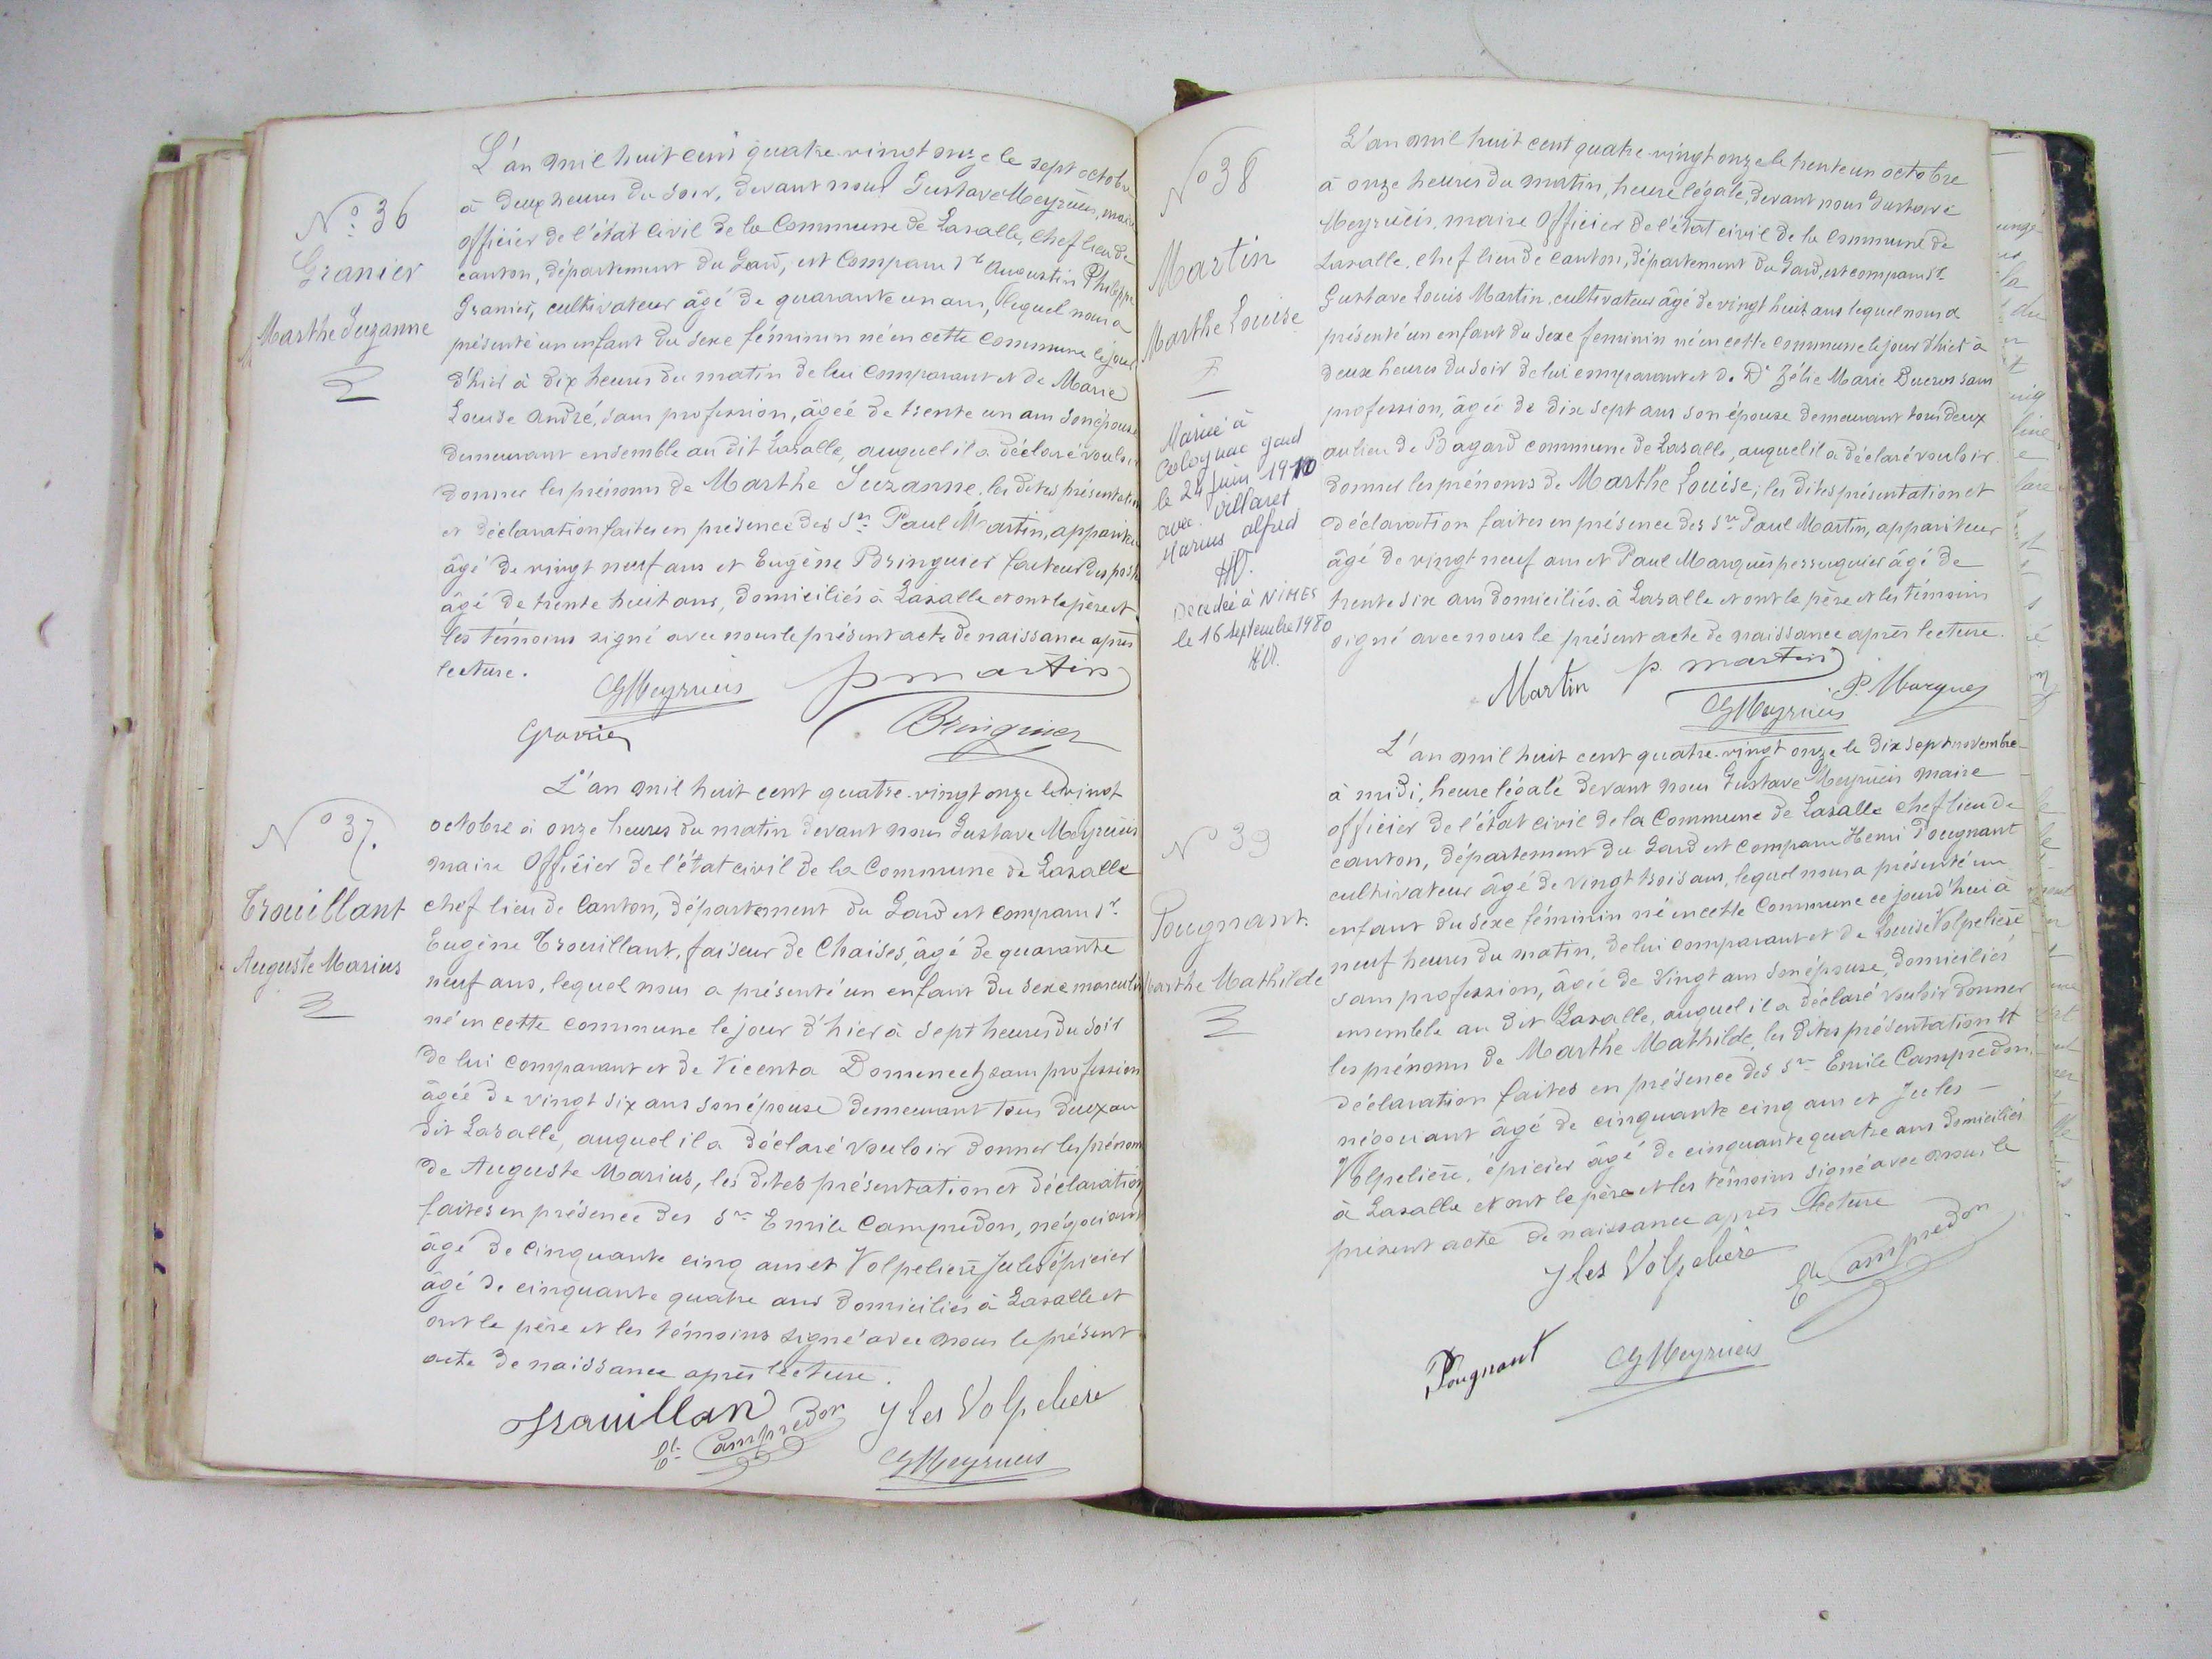 N° 36
Granier
Marthe Suzanne
L'an mil huit cent quatre-vingt onze le sept octobre
à deux heures du soir, devant nous Gustave Meyrueis, maire
officier de l'état civil de la Commune de Lasalle, chef lieu de
canton, département du Gard, est Comparu Sr Augustin Philippe
Granier, cultivateur âgé de quarante un ans, lequel nous a
présenté un enfant du sexe féminin né en cette commune le jour
d'hier à dix heures du matin de lui Comparant et de Marie
Louise André, sans profession, âgée de trente un ans son épouse
demeurant ensemble au dit Lasalle, auquel il a déclaré vouloir
donner les prénoms de Marthe Suzanne, les dites présentation
et déclaration faites en présence des Srs Paul Martin, appariteur
âgé de vingt neuf ans et Eugène Bringuier facteur des postes
âgé de trente huit ans, domiciliés à Lasalle et ont le père et
les témoins signé avec nous le présent acte de naissance après
lecture.
GMeyrueis p martin
Granier Bringuier
N° 37.
Trouillant
Auguste Marius
L'an mil huit cent quatre-vingt onze le vingt
octobre à onze heures du matin devant nous Gustave Meyrueis
maire Officier de l'état civil de la Commune de Lasalle
chef lieu de Canton, département du Gard est comparu Sr
Eugène Trouillant, faiseur de Chaises, âgé de quarante
neuf ans, lequel nous a présenté un enfant du sexe masculin
né en cette commune le jour d'hier à sept heures du soir
de lui comparant et de Vicenta Domenech sans profession
âgée de vingt six ans son épouse demeurant tous deux au
dit Lasalle, auquel il a déclaré vouloir donner les prénoms
de Auguste Marius, les dites présentation et déclaration
faites en présence des Srs Emile Campredon, négociant
âgé de cinquante cinq ans et Volpelière Jules épicier
âgé de cinquante quatre ans domiciliés à Lasalle et
ont le père et les témoins signé avec nous le présent
acte de naissance après lecture.
Trouillan Jles Volpeliere
El. Campredon GMeyrueis
N° 38
Martin
Marthe Louise
Mariée à
Colognac gard
le 24 juin 1910
avec Villaret
Marius alfred
Décédée à NIMES
le 16 septembre 1980
L'an mil huit cent quatre-vingt onze le trente un octobre
à onze heures du matin, heure légale, devant nous Gustave
Meyrueis, maire Officier de l'état civil de la Commune de
Lasalle, chef lieu de canton, département du Gard, est comparu Sr
Gustave Louis Martin, cultivateur âgé de vingt huit ans lequel nous a
présenté un enfant du sexe feminin né en cette commune le jour d'hier à
deux heures du soir de lui comparant et de De Zélie Marie Ducros sans
profession, âgée de dix sept ans son épouse demeurant tous deux
au lieu de Bagard commune de Lasalle, auquel il a déclaré vouloir
donner les prénoms de Marthe Louise; les dites présentation et
déclaration faites en présence des Srs Paul Martin, appariteur
âgé de vingt neuf ans et Paul Marquès perruquier âgé de
trente six ans domiciliés à Lasalle et ont le père et les témoins
signé avec nous le présent acte de naissance après lecture.
Martin p. martin P. Marques
GMeyrueis
N° 39
Pougnant.
Marthe Mathilde
L'an mil huit cent quatre-vingt onze le dix sept novembre
à midi, heure légale devant nous Gustave Meyrueis maire
officier de l'état civil de la Commune de Lasalle chef lieu de
canton, département du Gard est comparu Henri Pougnant
cultivateur âgé de vingt trois ans, lequel nous a présenté un
enfant du sexe féminin né en cette Commune ce jourd'hui à
neuf heures du matin, de lui comparant et de Louise Volpelière
sans profession, âgée de vingt ans son épouse, domiciliés
ensemble au dit Lasalle, auquel il a déclaré vouloir donner
les prénoms de Marthe Mathilde, les dites présentation et
déclaration faites en présence des Srs Emile Campredon,
négociant âgé de cinquante cinq ans et Jules
Volpelière, épicier âgé de cinquante quatre ans domiciliés
à Lasalle et ont le père et les témoins signé avec nous le
présent acte de naissance après lecture
Jles Volpeliere El. Campredon
Pougnant GMeyrueis